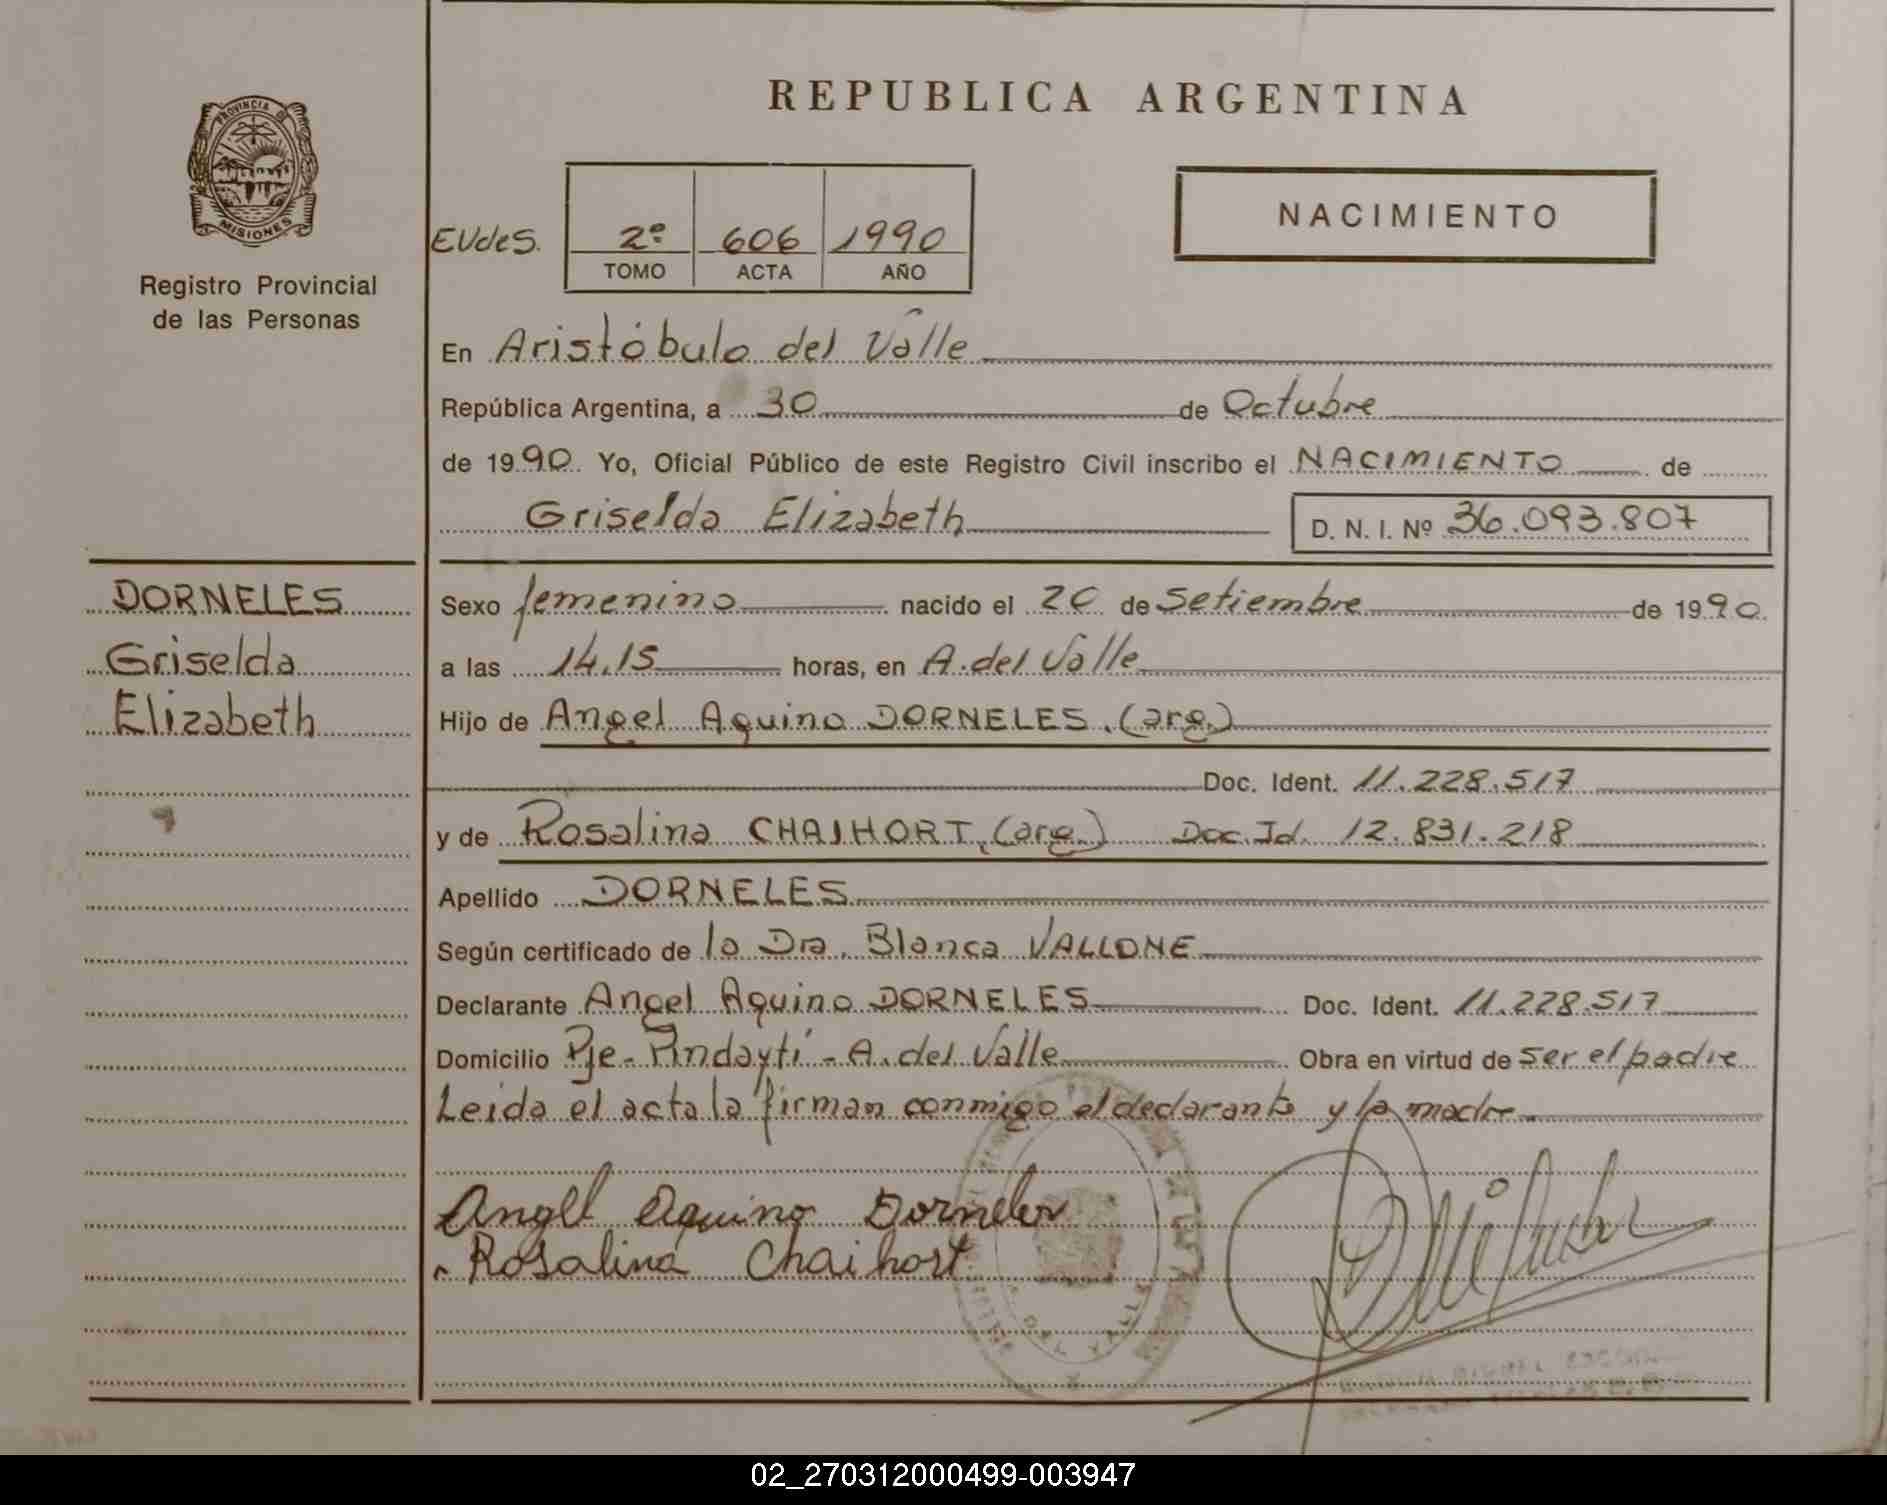 PROVINCIA
MISIONES
Registro Provincial
de las Personas
DORNELES
Griselda
Elizabeth
REPUBLICA ARGENTINA
EVdeS. 2º 606 1990
TOMO ACTA AÑO
NACIMIENTO
En Aristóbulo del Valle
República Argentina, a 30 de Octubre
de 1990. Yo, Oficial Público de este Registro Civil inscribo el NACIMIENTO de
Griselda Elizabeth D. N. I. Nº 36.093.807
Sexo femenino nacido el 20 de Setiembre de 1990.
a las 14.15 horas, en A. del Valle
Hijo de Angel Aquino DORNELES. (arg.)
Doc. Ident. 11.228.517
y de Rosalina CHAIHORT, (arg.) Doc. Id. 12.831.218
Apellido DORNELES
Según certificado de la Dra. Blanca VALLONE
Declarante Angel Aquino DORNELES Doc. Ident. 11.228.517
Domicilio Pje- Pindaytí - A. del Valle Obra en virtud de ser el padre
Leida el acta la firman conmigo el declarante y la madre.
Angel Aquino Dorneles
Rosalina Chaihort
02_270312000499-003947